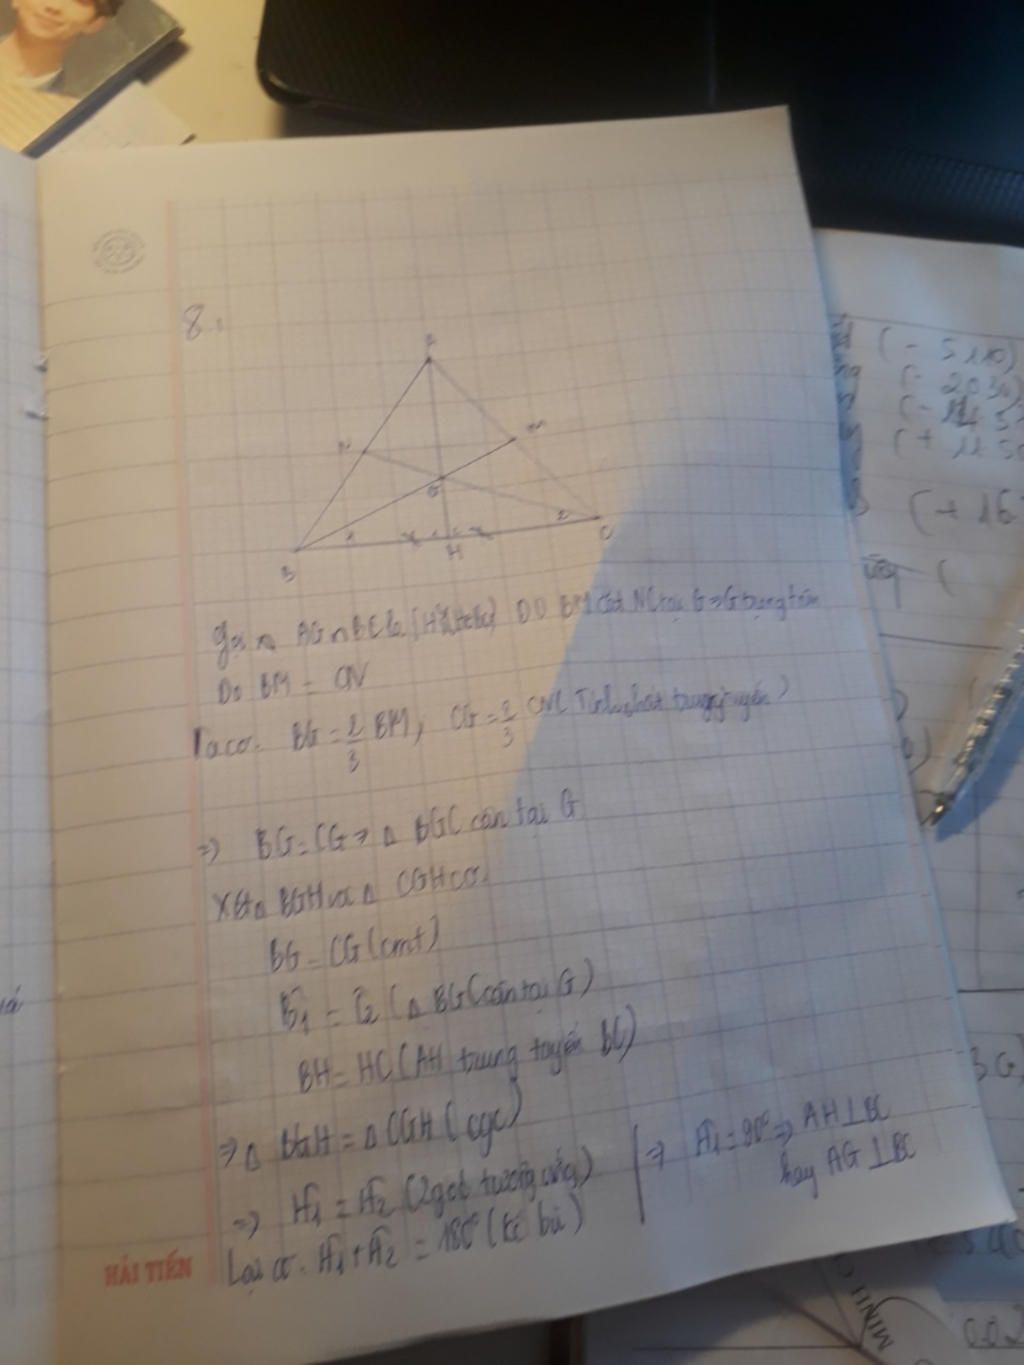 8.
A
N
M
G
1
2
B
H
C
Gọi AG ∩ BC là {H} Do BM cắt NC tại G => G trọng tâm
Do BM = CN
Ta có. BG = 2/3 BM, CG = 2/3 CN (Tính chất trung tuyến)
=> BG = CG => Δ BGC cân tại G
Xét Δ BGH và Δ CGH có.
BG = CG (cmt)
B̂1 = Ĉ2 (Δ BGC cân tại G)
BH = HC (AH trung tuyến BC)
=> Δ BGH = Δ CGH (cgc)
=> Ĥ1 = Ĥ2 (2 góc tương ứng)
Lại có. Ĥ1 + Ĥ2 = 180° (kề bù)
=> Ĥ1 = 90° => AH ⊥ BC
hay AG ⊥ BC
HẢI TIẾN
(- 5110)
(- 2030)
(+ 16
MINH C